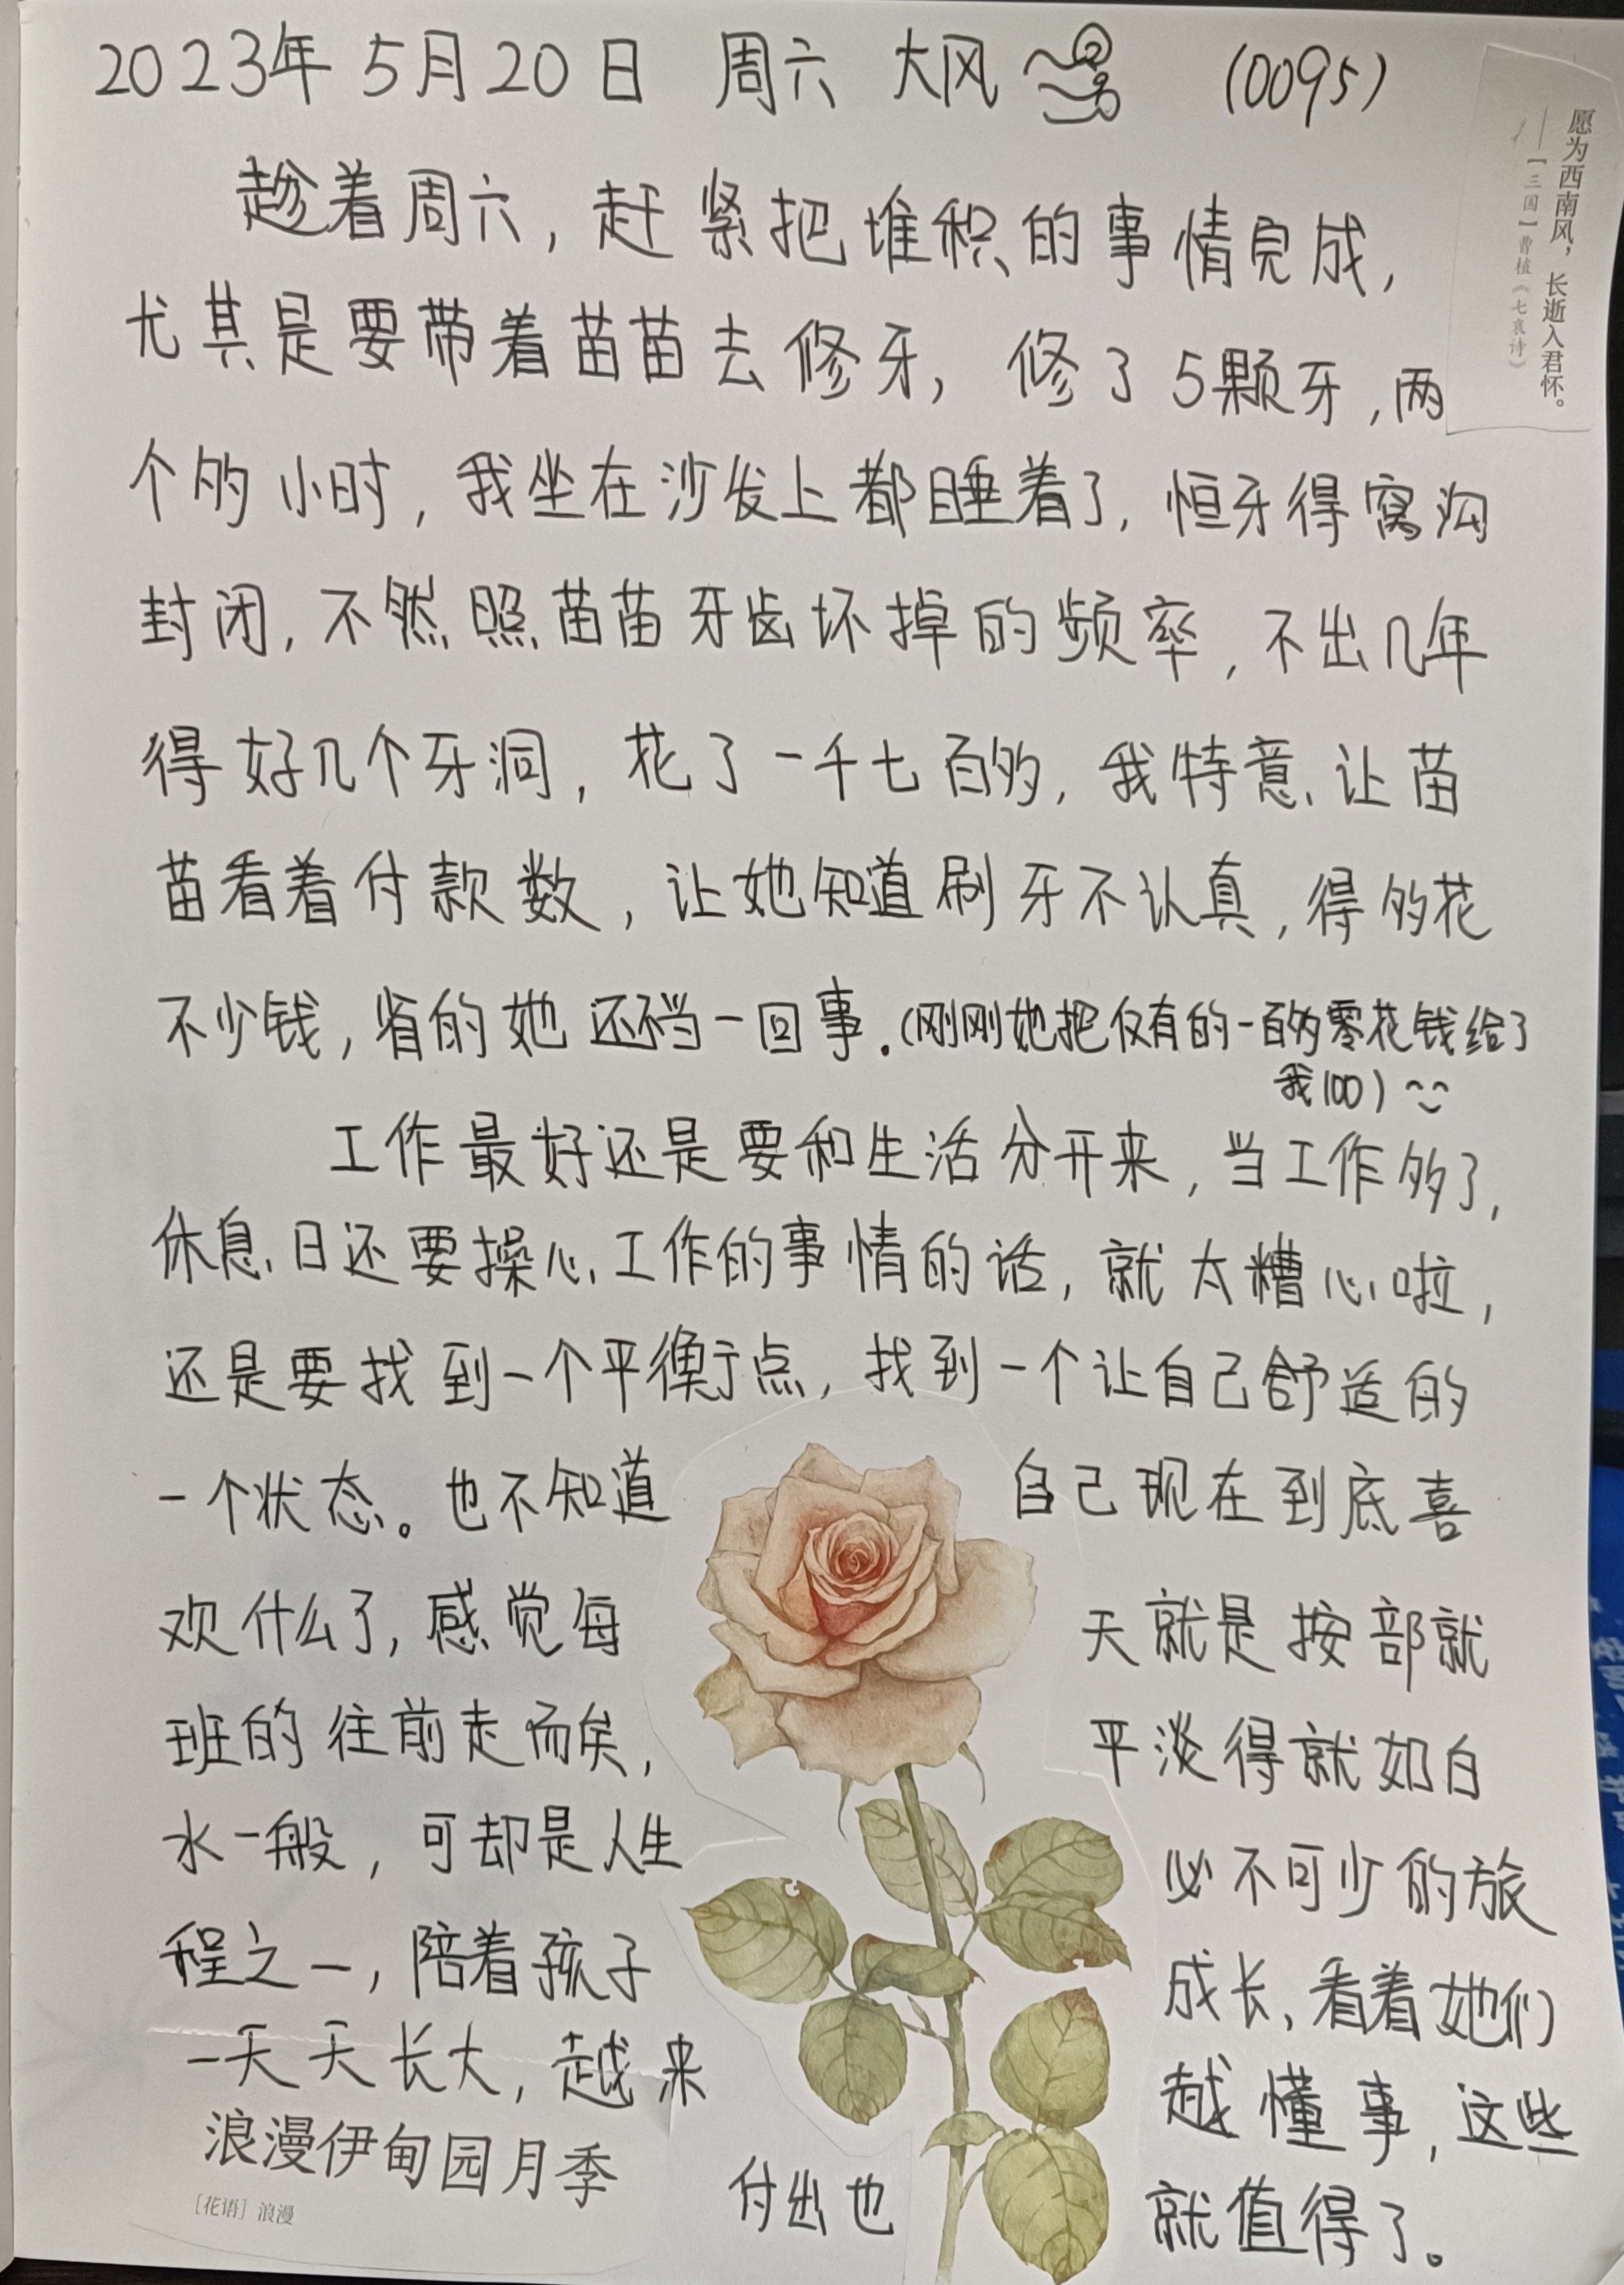 2023年5月20日 周六 大风 (0095)
愿为西南风，长逝入君怀。
——【三国】曹植《七哀诗》
趁着周六，赶紧把堆积的事情完成，
尤其是要带着苗苗去修牙，修了5颗牙，两
个多小时，我坐在沙发上都睡着了，恒牙得窝沟
封闭，不然照苗苗牙齿坏掉的频率，不出几年
得好几个牙洞，花了一千七百多，我特意让苗
苗看着付款数，让她知道刷牙不认真，得多花
不少钱，省的她还不当一回事。(刚刚她把仅有的一百多零花钱给了
我100)
工作最好还是要和生活分开来，当工作多了，
休息日还要操心工作的事情的话，就太糟心啦，
还是要找到一个平衡点，找到一个让自己舒适的
一个状态。也不知道自己现在到底喜
欢什么了，感觉每天就是按部就
班的往前走而矣，平淡得就如白
水一般，可却是人生必不可少的旅
程之一，陪着孩子成长，看着她们
一天天长大，越来越懂事，这些
付出也就值得了。
浪漫伊甸园月季
[花语] 浪漫